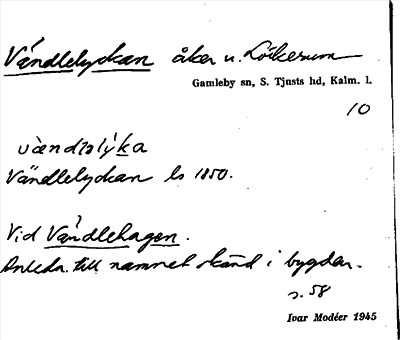 Vändlelyckan åker u. Lökerum
Gamleby sn, S. Tjusts hd, Kalm. l.
10
vàendləlýka
Vändlelyckan ls 1850.
Vid Vändlehagen.
Anledn. till namnet okänd i bygden.
s. 58
Ivar Modéer 1945